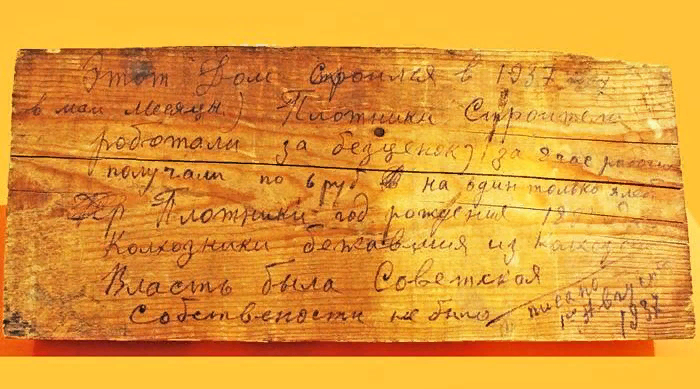 Этот Дом строился в 1937 году
в мае месяцы) Плотники Строители
роботали за безценок) за 8 час работы
получали по 6 руб на один только хлеб
Плотники год рождения
Колхозники бежавшия из колхозов
Власть была Советская
Собствености не было
писано
1го Августа
1937